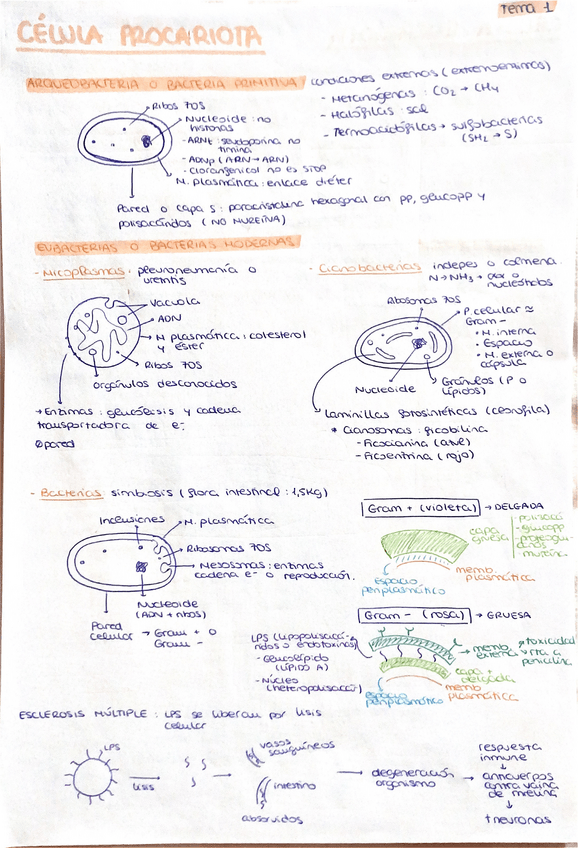 Tema 1
CÉLULA PROCARIOTA
ARQUEOBACTERIA O BACTERIA PRIMITIVA
condiciones extremas (extremoenzimas)
- Metanógenas: CO2 → CH4
- Halófilas: sal
- Termoacidófilas → sulfobacterias
(SH2 → S)
Ribos 70S
Nucleoide: no
histonas
- ARNt: seudouorina no
timina
- ADNp (ARN → ARN)
- cloranfenicol no es STOP
M. plasmática: enlace diéter
Pared o capa S: paracristalina hexagonal con pp, glucopp y
polisacáridos (NO MUREÍNA)
EUBACTERIAS O BACTERIAS MODERNAS
- Micoplasmas: pleuroneumonía o
uretritis
Vacuola
ADN
M plasmática: colesterol
y éster
Ribos 70S
orgánulos desconocidos
→ Enzimas: glucólisis y cadena
transportadora de e-
∅ pared
- Cianobacterias indepes o colmena.
N → NH3 → aa o
nucleótidos
Ribosomas 70S
P. celular ≈
Gram -
• M. interna
• Espacio
• M. externa o
cápsula
Gránulos (P o
lípidos)
Nucleoide
Laminillas fotosintéticas (clorofila)
* Cianosomas: ficobilina
- Ficocianina (azul)
- Ficoeritrina (rojo)
- Bacterias: simbiosis (flora intestinal: 1,5Kg)
Inclusiones
M. plasmática
Ribosomas 70S
Mesosomas: enzimas
cadena e- o reproducción.
Nucleoide
(ADN + ribos)
Pared
celular → Gram + o
Gram -
Gram + (violeta) → DELGADA
capa
gruesa
- polisacá
- glucopp
- mureína
espacio
periplasmático
memb.
plasmática
Gram - (rosa) → GRUESA
LPS (lipopolisacá-
ridos o endotoxinas)
- Glucolípido
(LÍPIDO A)
- Núcleo
(heteropolisacári)
memb
externa
toxicidad
rta a
penicilina
capa
delgada
memb
plasmática
espacio
periplasmático
ESCLEROSIS MÚLTIPLE: LPS se liberan por lisis
celular
LPS
lisis
vasos
sanguíneos
intestino
absorvidos
degeneración
organismo
respuesta
inmune
anticuerpos
contra vaina
de mielina
†neuronas